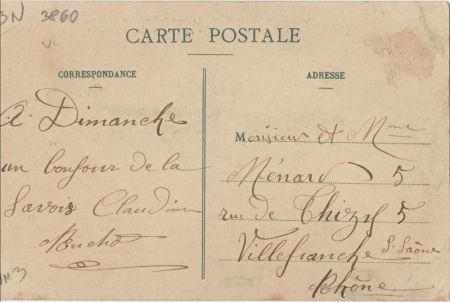 BN 3860
CARTE POSTALE
CORRESPONDANCE
ADRESSE
A Dimanche
un bonjour de la
Savoie Claudine
Monsieur et Mme
Ménard 5
rue de Thizy 5
Villefranche S. Saône
Rhône